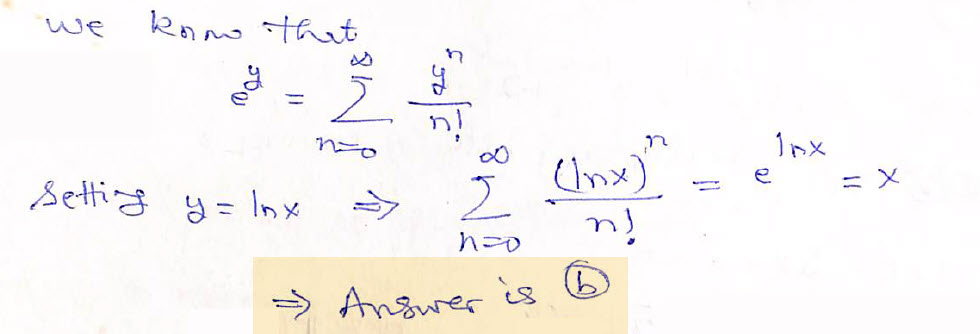 we know that
e^y = ∑_{n=0}^{∞} y^n / n!
Setting y = ln x ⇒ ∑_{n=0}^{∞} (ln x)^n / n! = e^{ln x} = x
⇒ Answer is ⓑ